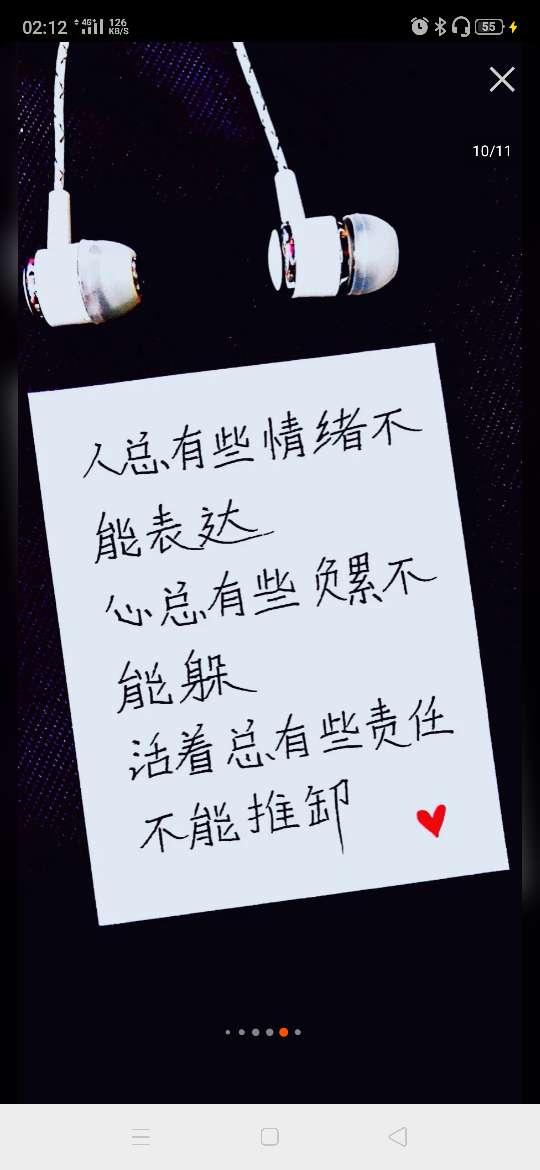 02:12 4G+ 126 KB/S 55
10/11
人总有些情绪不
能表达
心总有些负累不
能躲
活着总有些责任
不能推卸